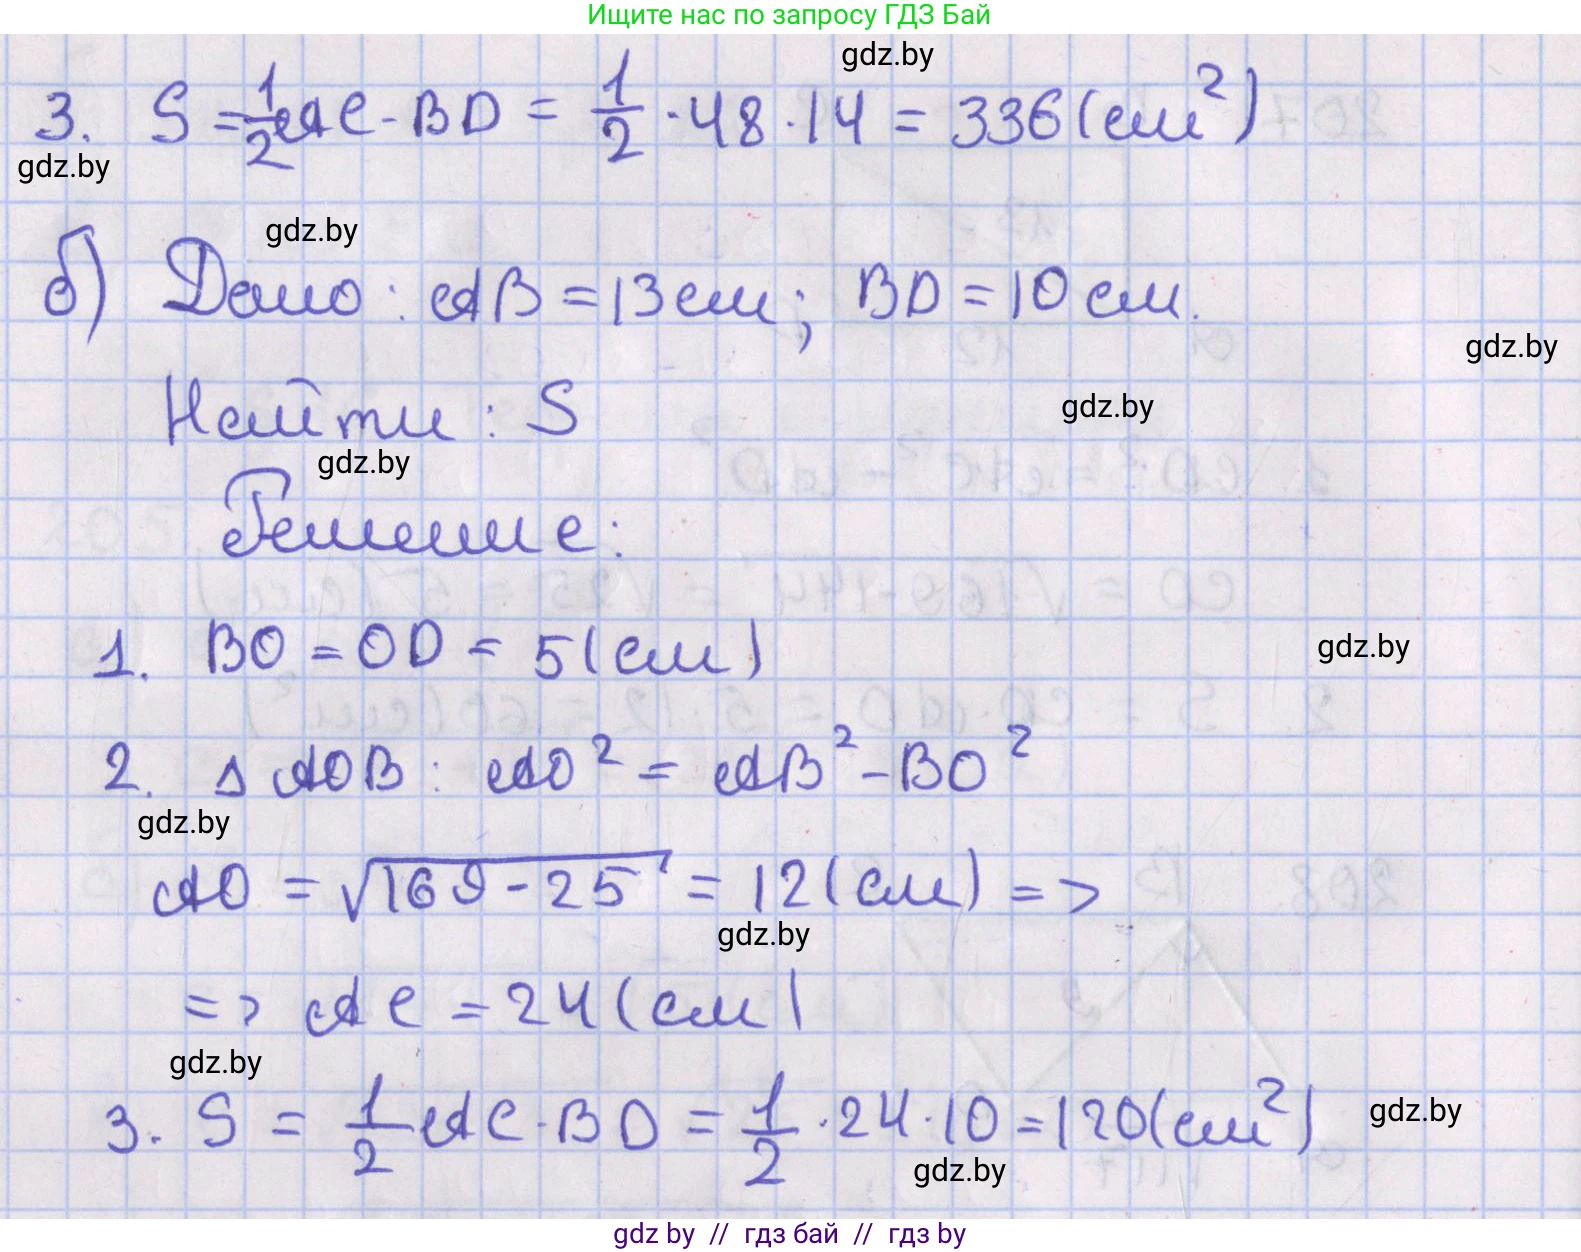 Ищите нас по запросу ГДЗ Бай
gdz.by
3. S = 1/2 AC · BD = 1/2 · 48 · 14 = 336 (см²)
gdz.by
gdz.by
б) Дано: AB = 13 см; BD = 10 см.
gdz.by
Найти: S
gdz.by
gdz.by
Решение:
1. BO = OD = 5 (см)
gdz.by
2. Δ AOB: AO² = AB² - BO²
gdz.by
AO = √169 - 25 = 12 (см) =>
gdz.by
=> AC = 24 (см)
gdz.by
3. S = 1/2 AC · BD = 1/2 · 24 · 10 = 120 (см²)
gdz.by
gdz.by
gdz by // гдз бай // гдз by